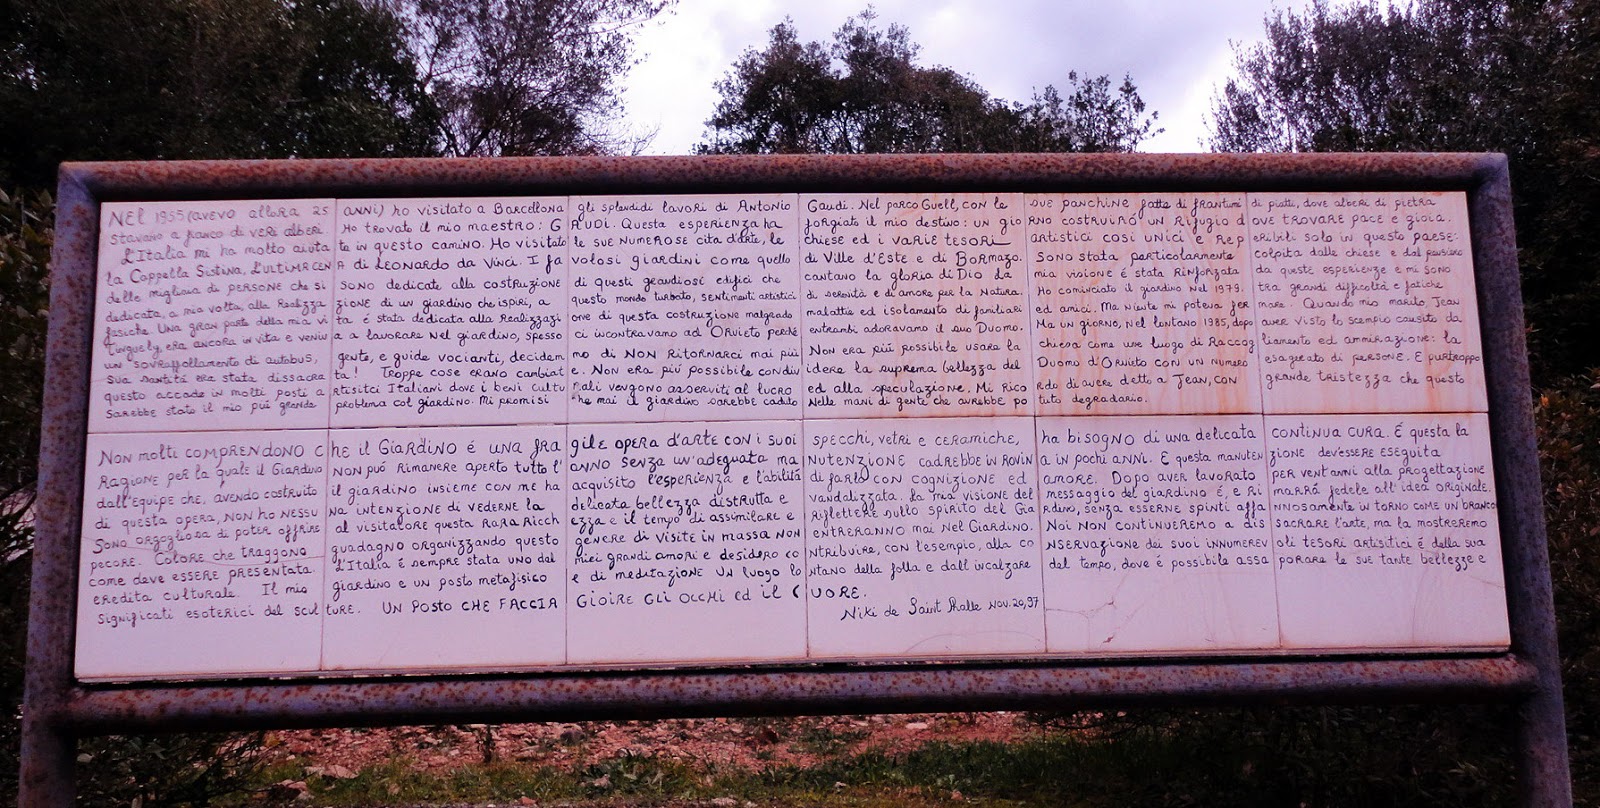 NEL 1955 (avevo allora 25 anni) ho visitato a Barcellona gli splendidi lavori di Antonio Gaudi. Nel parco Guell, con le sue panchine fatte di frantumi di piatti, dove alberi di pietra
stavano a fianco di veri alberi Ho trovato il mio maestro: GAUDI. Questa esperienza ha forgiato il mio destino: un giorno costruiró un rifugio dove trovare pace e gioia.
L'Italia mi ha molto aiutata in questo camino. Ho visitato le sue numerose citta d'arte, le chiese ed i varie tesori artistici cosi unici e reperibili solo in questo paese:
la Cappella Sistina, l'Ultima Cena di Leonardo da Vinci. I favolosi giardini come quello di Ville d'Este e di Bormazo. Sono stata particolarmente colpita dalle chiese e dal pensiero
delle migliaia di persone che si sono dedicate alla costruzione di questi grandiosi edifici che cantano la gloria di Dio. La mia visione é stata rinforzata da queste esperienze e mi sono
dedicata, a mia volta, alla realizzazione di un giardino che ispiri, a questo mondo turbato, sentimenti artistici di serenità e di amore per la Natura. Ho cominciato il giardino nel 1979. tra grandi difficoltà e fatiche
fisiche. Una gran parte della mia vita é stata dedicata alla realizzazione di questa costruzione malgrado malattie ed isolamento di familiari ed amici. Ma niente mi poteva fermare. Quando mio marito, Jean
Tinguely, era ancora in vita e veniva a lavorare nel giardino, spesso ci incontravamo ad Orvieto perché entrambi adoravamo il suo Duomo. Ma un giorno, nel lontano 1985, dopo aver visto lo scempio causato da
un sovraffollamento di autobus, gente, e guide vocianti, decidemmo di non ritornarci mai piú Non era piú possibile usare la chiesa come un luogo di raccogliamento ed ammirazione: la
sua santità era stata dissacrata! Troppe cose erano cambiate. Non era piú possibile condividere la suprema bellezza del Duomo d'Orvieto con un numero esagerato di persone. E purtroppo
questo accade in molti posti artisitci Italiani dove i beni culturali vengono asserviti al lucro ed alla speculazione. Mi ricordo di avere detto a Jean, con grande tristezza che questo
sarebbe stato il mio piú grande problema col giardino. Mi promisi che mai il giardino sarebbe caduto nelle mani di gente che avrebbe potuto degradarlo.
Non molti comprendono che il Giardino é una fragile opera d'arte con i suoi specchi, vetri e ceramiche, ha bisogno di una delicata continua cura. É questa la
ragione per la quale il Giardino non puó rimanere aperto tutto l'anno senza un'adeguata manutenzione cadrebbe in rovina in pochi anni. E questa manutenzione dev'essere eseguita
dall'equipe che, avendo costruito il giardino insieme con me ha acquisito l'esperienza e l'abilità di farlo con cognizione ed amore. Dopo aver lavorato per vent'anni alla progettazione
di questa opera, non ho nessuna intenzione di vederne la delicata bellezza distrutta e vandalizzata. La mia visione del messaggio del giardino é, e rimarrá fedele all'idea originale.
Sono orgogliosa di poter offrire al visitatore questa rara ricchezza e il tempo di assimilare e riflettere sullo spirito del Giardino, senza esserne spinti affannosamente in torno come un branco
pecore. Colore che traggono guadagno organizzando questo genere di visite in massa non entreranno mai nel Giardino. Noi non continueremo a dissacrare l'arte, ma la mostreremo
come deve essere presentata. L'Italia é sempre stata uno dei miei grandi amori e desidero contribuire, con l'esempio, alla conservazione dei suoi innumerevoli tesori artisitici é della sua
eredita culturale. Il mio giardino e un posto metafisico e di meditazione un luogo lontano della folla e dall'incalzare del tempo, dove é possibile assaporare le sue tante bellezze e
significati esoterici del sculture. Un posto che faccia gioire gli occhi ed il cuore.
Niki de Saint Phalle Nov. 20, 97